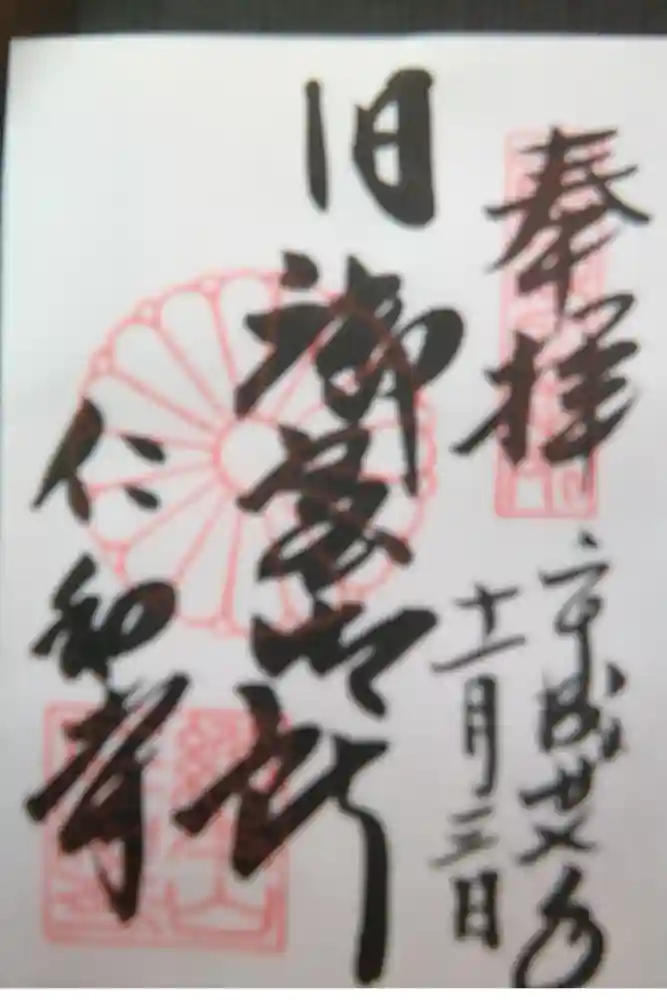 奉拝
平成廿八年
十一月三日
旧御室御所
仁和寺